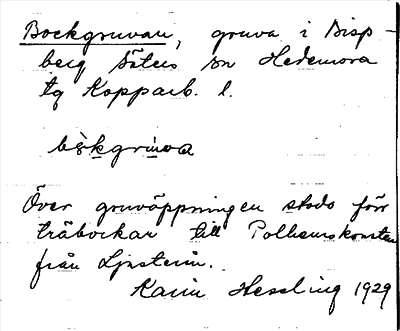 Bockgruvan, gruva i Bisp-
berg Säters sn Hedemora
tg Kopparb. l.
bòkgrùva
Över gruvöppningen stodo förr
träbockar till Polhemskonsten
från Ljustern.
Karin Hessling 1929